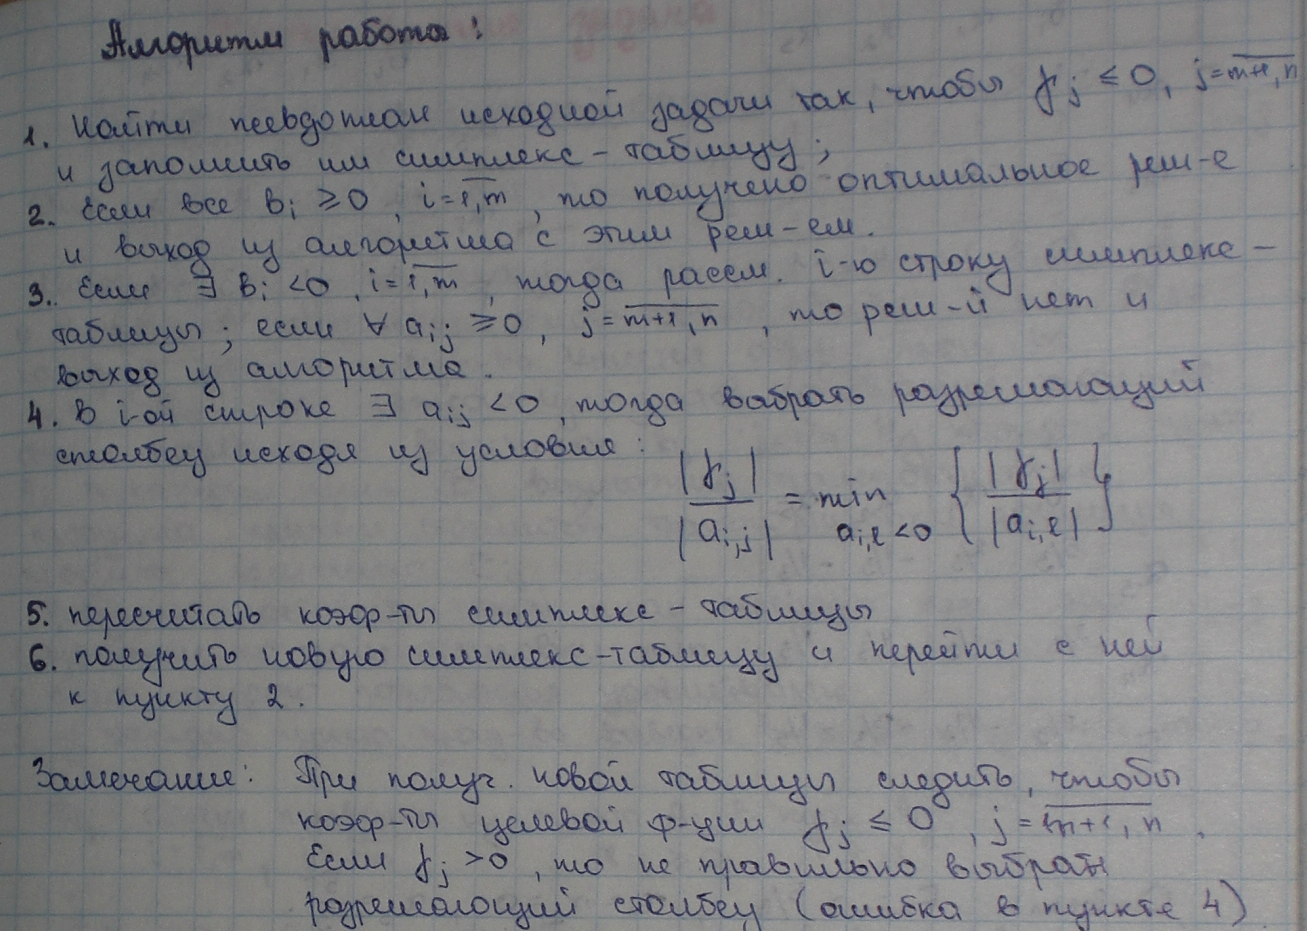 Алгоритм работы:
1. Найти псевдоплан исходной задачи так, чтобы γj ≤ 0, j=m+1,n
и заполнить им симплекс-таблицу;
2. Если все bi ≥ 0, i=1,m, то получено оптимальное реш-е
и выход из алгоритма с этим реш-ем.
3. Если ∃ bi < 0, i=1,m, тогда рассм. i-ю строку симплекс-
таблицы; если ∀ aij ≥ 0, j=m+1,n, то реш-й нет и
выход из алгоритма.
4. В i-ой строке ∃ aij < 0, тогда выбрать разрешающий
столбец исходя из условия:
|γj| / |ai,j| = min ai,l<0 { |γj| / |ai,l| }
5. пересчитать коэф-ты симплекс-таблицы
6. получить новую симплекс-таблицу и перейти с ней
к пункту 2.
Замечание: При получ. новой таблицы следить, чтобы
коэф-ты целевой ф-ции γj ≤ 0, j=m+1,n.
Если γj > 0, то не правильно выбран
разрешающий столбец (ошибка в пункте 4)